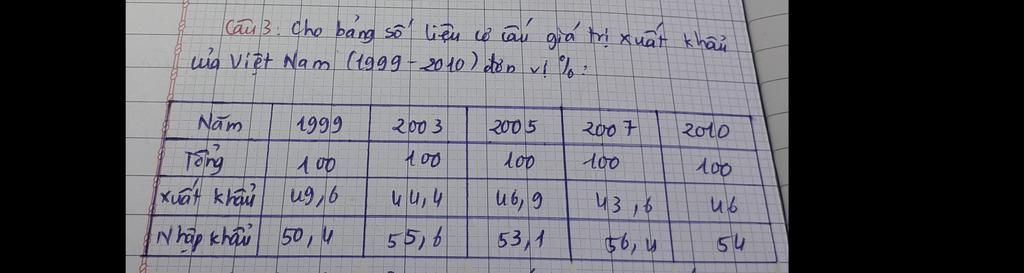 Câu 3: Cho bảng số liệu cơ cấu giá trị xuất khẩu
của Việt Nam (1999-2010) đơn vị %:
Năm 1999 2003 2005 2007 2010
Tổng 100 100 100 100 100
Xuất khẩu 49,6 44,4 46,9 43,6 46
Nhập khẩu 50,4 55,6 53,1 56,4 54